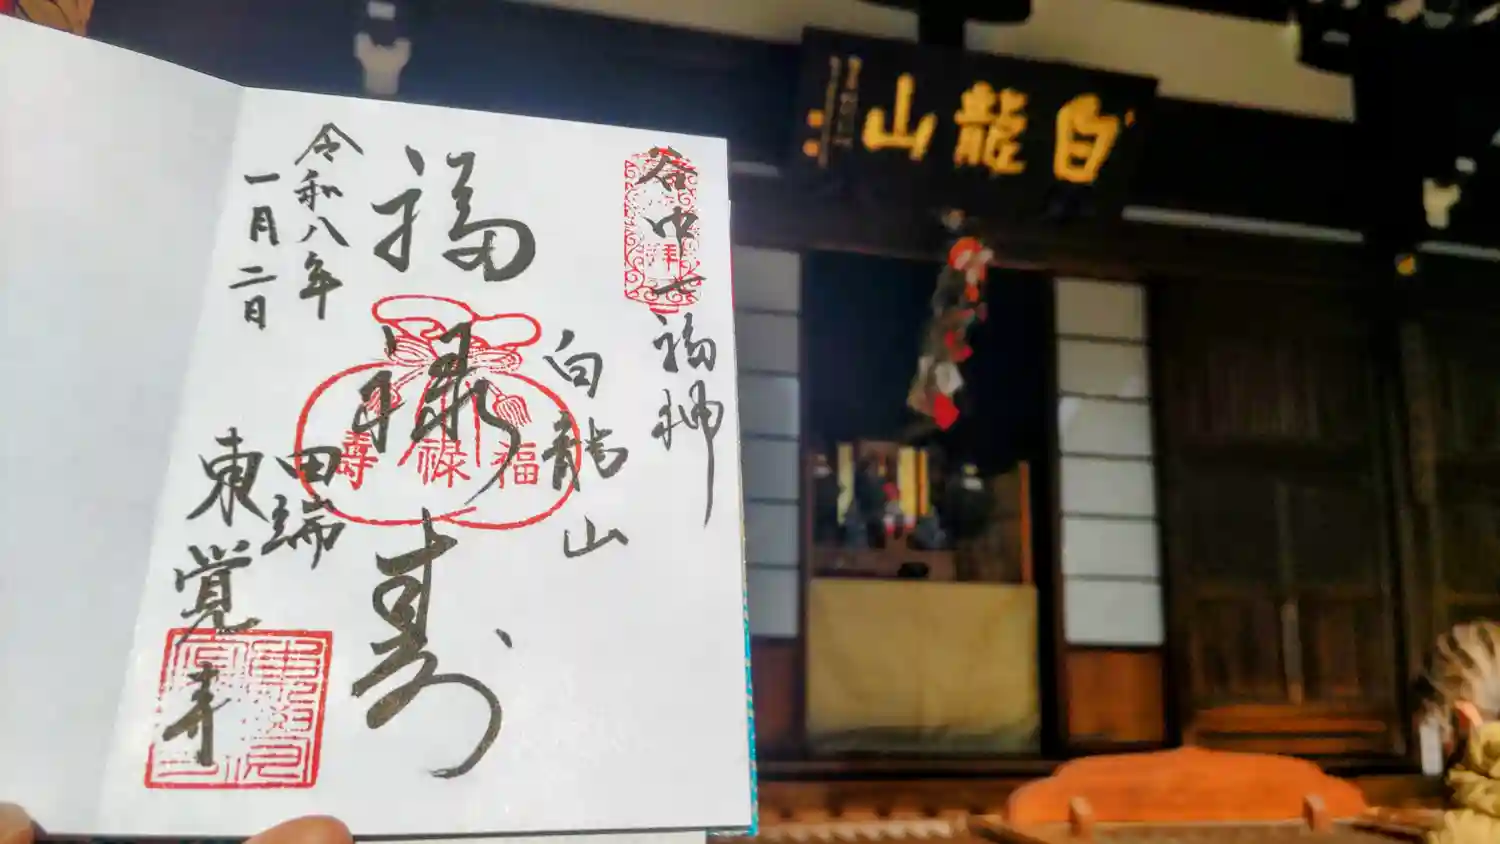 谷中七福神
拝
白龍山
福禄寿
福禄壽
田端
東覚寺
令和八年
一月二日
白龍山